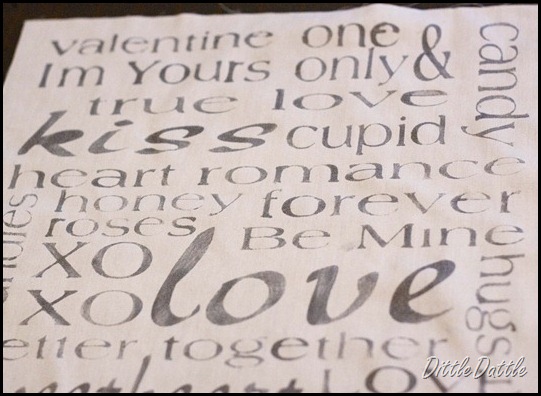 valentine one
Im Yours only &
candy
true love
kiss cupid
heart romance
honey forever
roses Be Mine
XO love
XO
hugs
etter together
DittleDattle